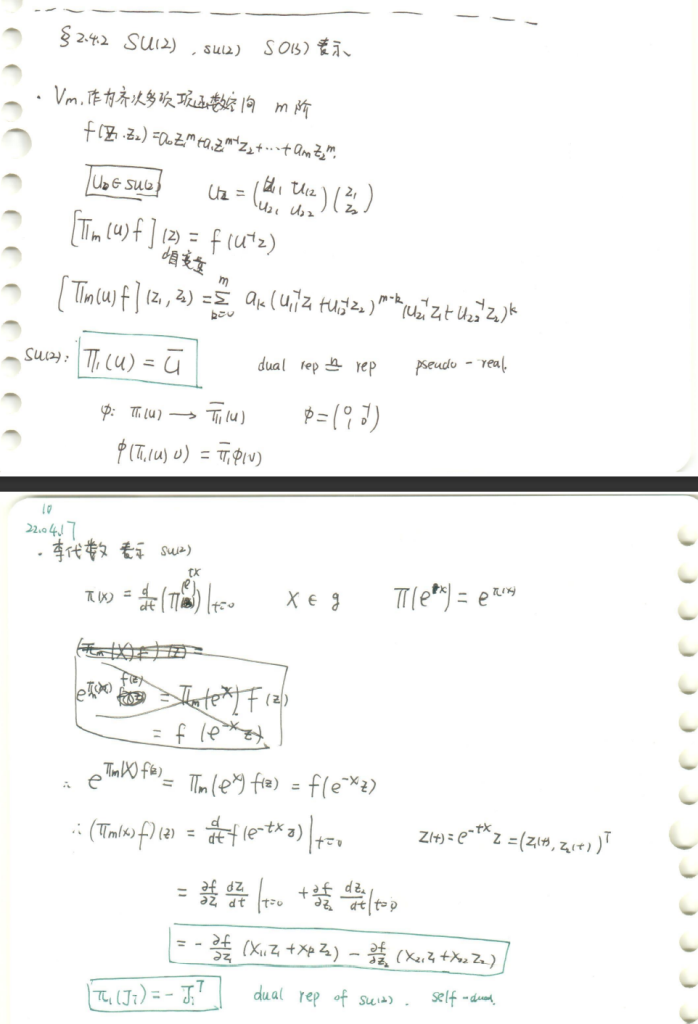 § 2.4.2 SU(2), su(2) SO(3) 表示
· Vm, 作为齐次多项 函数空间 m 阶
f(z1, z2) = a0 z1^m + a1 z1^{m-1} z2 + ··· + am z2^m.
U ∈ SU(2) Uz = (U11 U12 U21 U22)(z1 z2)
[Πm(U) f](z) = f(U^{-1}z)
自变量
[Πm(U) f](z1, z2) = Σ_{k=0}^{m} ak (U11^{-1} z1 + U12^{-1} z2)^{m-k} (U21^{-1} z1 + U22^{-1} z2)^k
SU(2): Π1(U) = Ū dual rep ≅ rep pseudo-real.
φ: Π1(U) → Π̄1(U) φ = (0 -1 1 0)
φ(Π1(U) υ) = Π̄1 φ(υ)
10
22.04.17
· 李代数 表示 su(2)
π(X) = d/dt (Π(e^{tX}))|t=0 X ∈ g Π(e^{tX}) = e^{π(X)}
(πm(X) f)(z) =
e^{πm(X)} f(z) = Πm(e^X) f(z)
= f(e^{-X} z)
∴ e^{πm(X)} f(z) = Πm(e^X) f(z) = f(e^{-X} z)
∴ (πm(X) f)(z) = d/dt f(e^{-tX} z)|t=0 z(t) = e^{-tX} z = (z1(t), z2(t))^T
= ∂f/∂z1 dz1/dt |t=0 + ∂f/∂z2 dz2/dt |t=0
= - ∂f/∂z1 (X11 z1 + X12 z2) - ∂f/∂z2 (X21 z1 + X22 z2)
π1(Ji) = - Ji^T dual rep of su(2). self-dual.